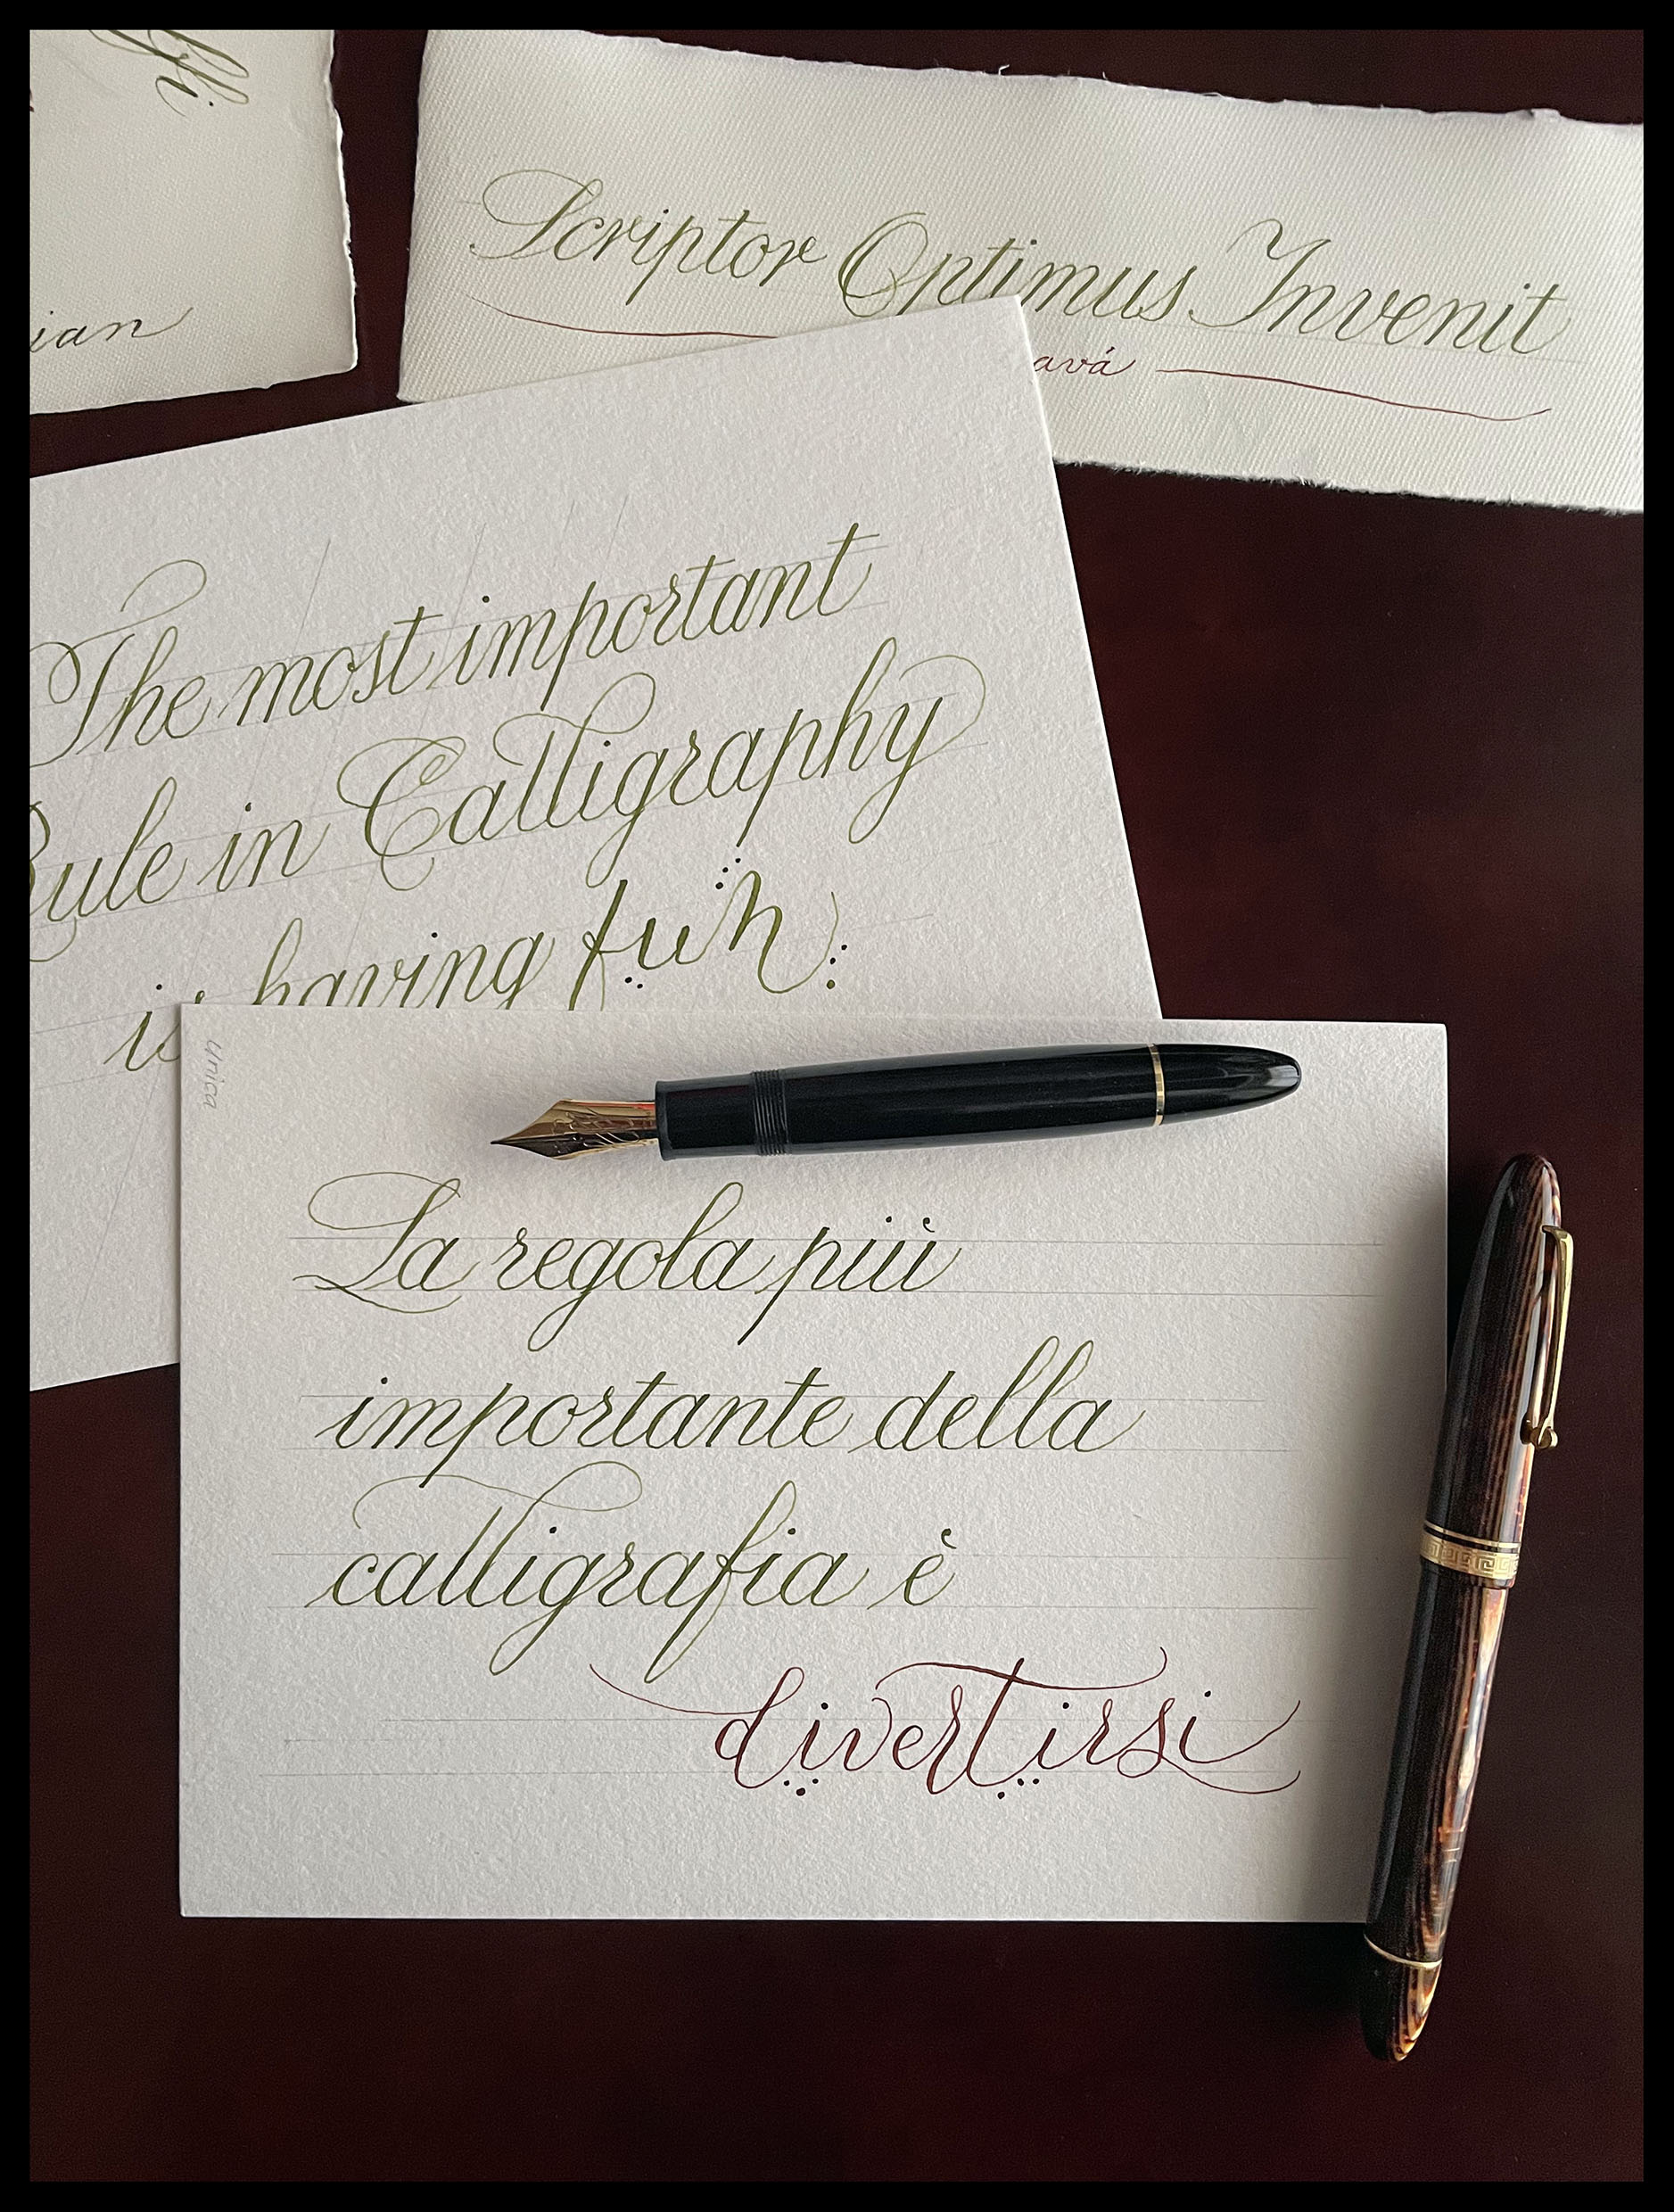 Scriptor Optimus Invenit
The most important
Rule in Calligraphy
is having fun
unica
La regola più
importante della
calligrafia è
divertirsi